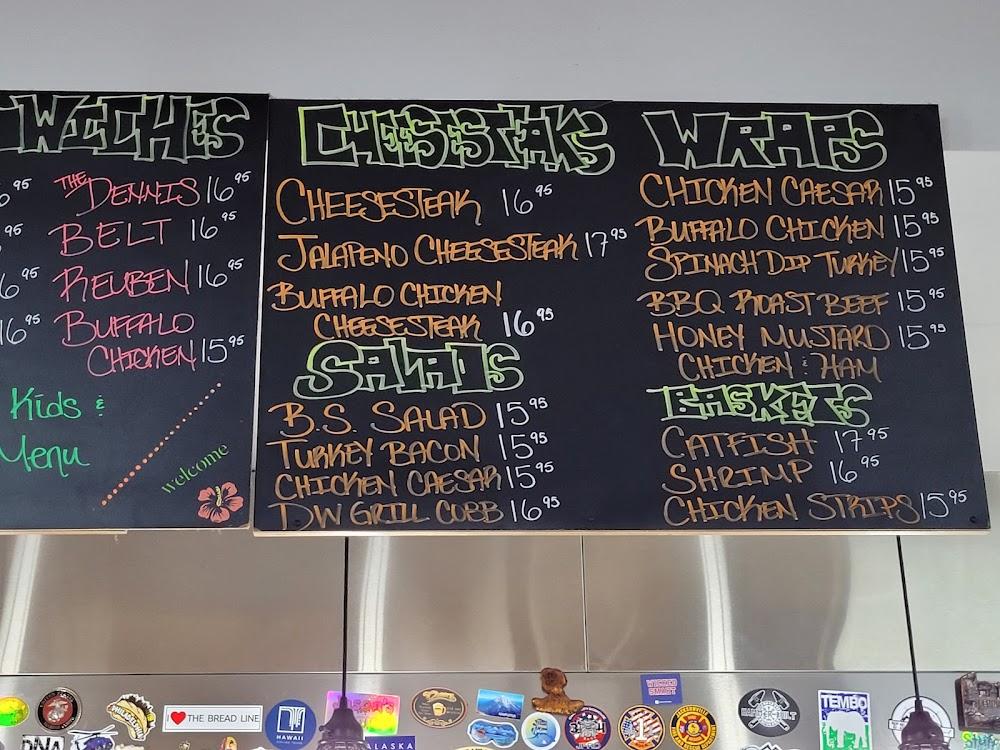 WICHES
95
THE DENNIS 16 95
95
BELT 16 95
6 95
REUBEN 16 95
16 95
BUFFALO
CHICKEN 15 95
Kids &
Menu
welcome
CHEESESTEAKS
CHEESESTEAK 16 95
JALAPENO CHEESESTEAK 17 95
BUFFALO CHICKEN
CHEESESTEAK 16 95
SALADS
B.S. SALAD 15 95
TURKEY BACON 15 95
CHICKEN CAESAR 15 95
DW GRILL COBB 16 95
WRAPS
CHICKEN CAESAR 15 95
BUFFALO CHICKEN 15 95
SPINACH DIP TURKEY 15 95
BBQ ROAST BEEF 15 95
HONEY MUSTARD 15 95
CHICKEN & HAM
BASKETS
CATFISH 17 95
SHRIMP 16 95
CHICKEN STRIPS 15 95
I THE BREAD LINE
HAWAII
ALASKA
WICKED
SMAHT
JACKSONVILLE
TEMBO
DNA